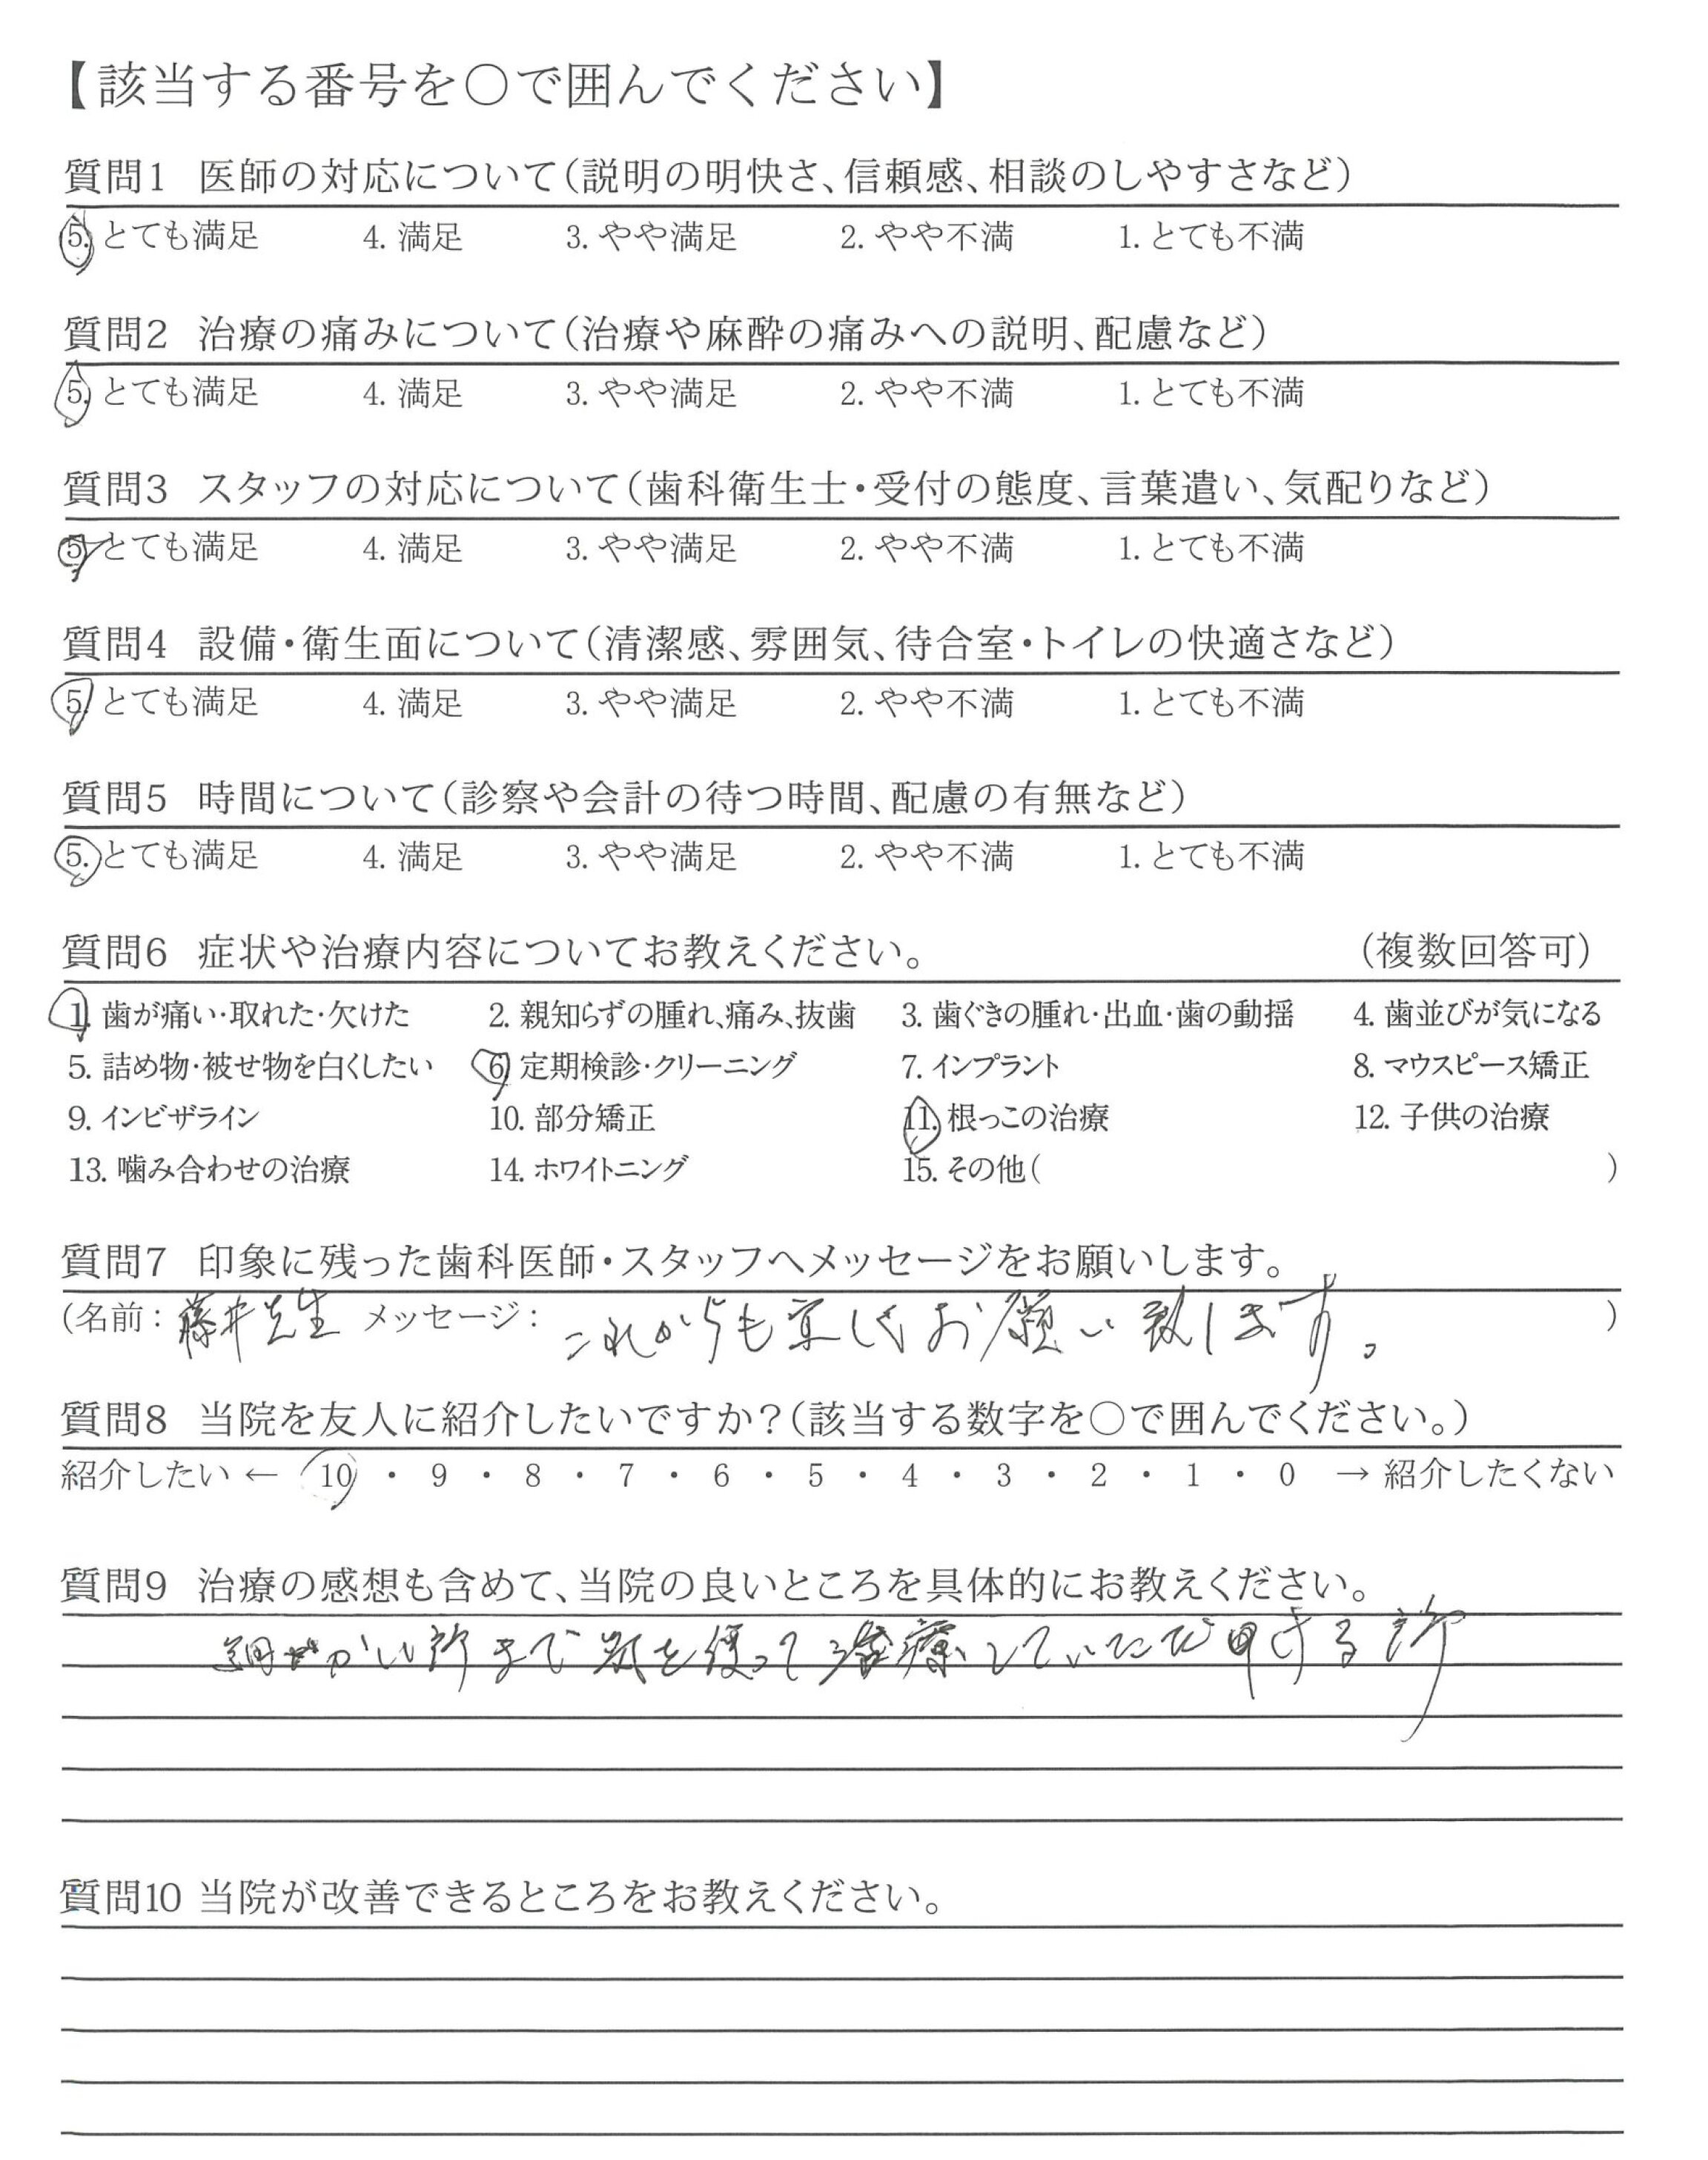 【該当する番号を○で囲んでください】
質問1 医師の対応について(説明の明快さ、信頼感、相談のしやすさなど)
5. とても満足 4. 満足 3. やや満足 2. やや不満 1. とても不満
質問2 治療の痛みについて(治療や麻酔の痛みへの説明、配慮など)
5. とても満足 4. 満足 3. やや満足 2. やや不満 1. とても不満
質問3 スタッフの対応について(歯科衛生士・受付の態度、言葉遣い、気配りなど)
5. とても満足 4. 満足 3. やや満足 2. やや不満 1. とても不満
質問4 設備・衛生面について(清潔感、雰囲気、待合室・トイレの快適さなど)
5. とても満足 4. 満足 3. やや満足 2. やや不満 1. とても不満
質問5 時間について(診察や会計の待つ時間、配慮の有無など)
5. とても満足 4. 満足 3. やや満足 2. やや不満 1. とても不満
質問6 症状や治療内容についてお教えください。 (複数回答可)
1. 歯が痛い・取れた・欠けた 2. 親知らずの腫れ、痛み、抜歯 3. 歯ぐきの腫れ・出血・歯の動揺 4. 歯並びが気になる
5. 詰め物・被せ物を白くしたい 6. 定期検診・クリーニング 7. インプラント 8. マウスピース矯正
9. インビザライン 10. 部分矯正 11. 根っこの治療 12. 子供の治療
13. 噛み合わせの治療 14. ホワイトニング 15. その他( )
質問7 印象に残った歯科医師・スタッフへメッセージをお願いします。
(名前: 藤井先生 メッセージ: これからも宜しくお願い致します。 )
質問8 当院を友人に紹介したいですか?(該当する数字を○で囲んでください。)
紹介したい ← 10 ・ 9 ・ 8 ・ 7 ・ 6 ・ 5 ・ 4 ・ 3 ・ 2 ・ 1 ・ 0 → 紹介したくない
質問9 治療の感想も含めて、当院の良いところを具体的にお教えください。
細かい所まで気を使って治療していただける所
質問10 当院が改善できるところをお教えください。